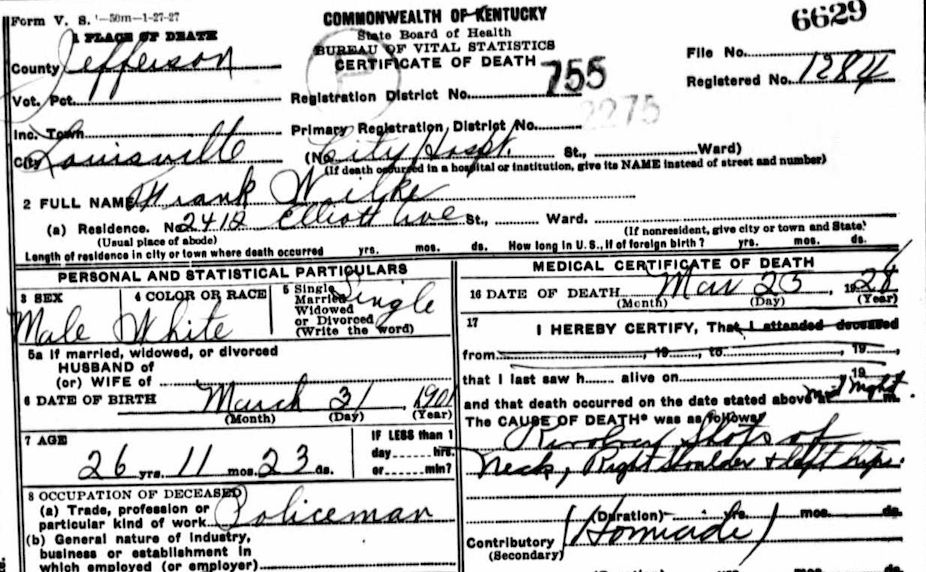 Form V. S. 1—50m—1-27-27
COMMONWEALTH OF KENTUCKY
State Board of Health
BUREAU OF VITAL STATISTICS
CERTIFICATE OF DEATH
6629
1 PLACE OF DEATH
County Jefferson
File No.
Registered No. 1284
Vot. Pct.
Registration District No. 755
2275
Inc. Town
Primary Registration District No.
City Louisville (No. City Hospt. St., Ward)
(If death occurred in a hospital or institution, give its NAME instead of street and number)
2 FULL NAME Frank Wilke
(a) Residence. No. 2412 Elliott Ave St., Ward.
(Usual place of abode) (If nonresident, give city or town and State)
Length of residence in city or town where death occurred yrs. mos. ds. How long in U. S., if of foreign birth? yrs. mos. ds.
PERSONAL AND STATISTICAL PARTICULARS
3 SEX 4 COLOR OR RACE 5 Single
Married
Widowed
or Divorced
(Write the word)
Male White Single
5a If married, widowed, or divorced
HUSBAND of
(or) WIFE of
6 DATE OF BIRTH March 31, 1901
(Month) (Day) (Year)
7 AGE
26 yrs. 11 mos. 23 ds.
IF LESS than 1
day hrs.
or min?
8 OCCUPATION OF DECEASED
(a) Trade, profession or
particular kind of work Policeman
(b) General nature of industry,
business or establishment in
which employed (or employer)
MEDICAL CERTIFICATE OF DEATH
16 DATE OF DEATH Mar 23, 1928
(Month) (Day) (Year)
17 I HEREBY CERTIFY, That I attended deceased
from , 19 , to , 19 ,
that I last saw h alive on , 19
and that death occurred on the date stated above at Mid Night m.
The CAUSE OF DEATH* was as follows:
Revolver Shots of
Neck, Right Shoulder & left hip.
(Duration) yrs. mos. ds.
Contributory (Homicide)
(Secondary)